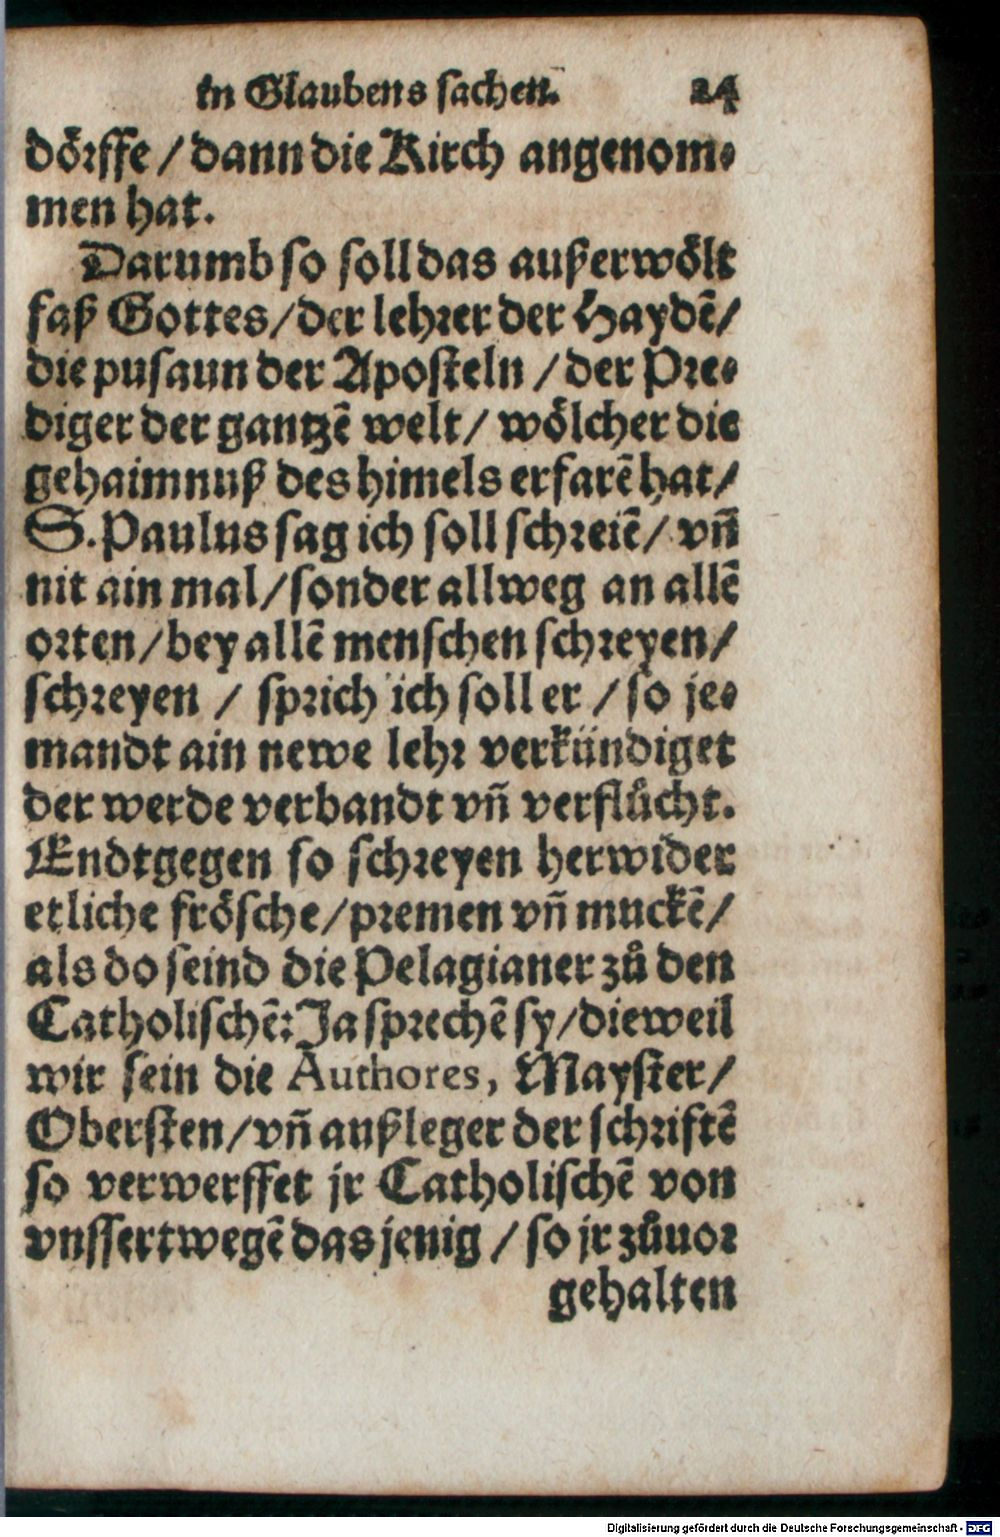 in Glaubens sachen. 24
dörffe / dann die Kirch angenom⸗
men hat.
Darumb so soll das außerwölt
faß Gottes / der lehrer der Haydē /
die pusaun der Aposteln / der Pre⸗
diger der gantzē welt / wölcher die
gehaimnuß des himels erfarē hat /
S. Paulus sag ich soll schreiē / vñ
nit ain mal / sonder allweg an allē
orten / bey allē menschen schreyen /
schreyen / sprich ich soll er / so je⸗
mandt ain newe lehr verkündiget
der werde verbandt vñ verflůcht.
Endtgegen so schreyen herwider
etliche frösche / premen vñ muckē /
als do seind die Pelagianer zů den
Catholischē: Ja sprechē sy / dieweil
wir sein die Authores, Mayster /
Obersten / vñ außleger der schriftē
so verwerffet jr Catholischē von
vnssertwegē das jenig / so jr zůuor
gehalten
Digitalisierung gefördert durch die Deutsche Forschungsgemeinschaft - DFG